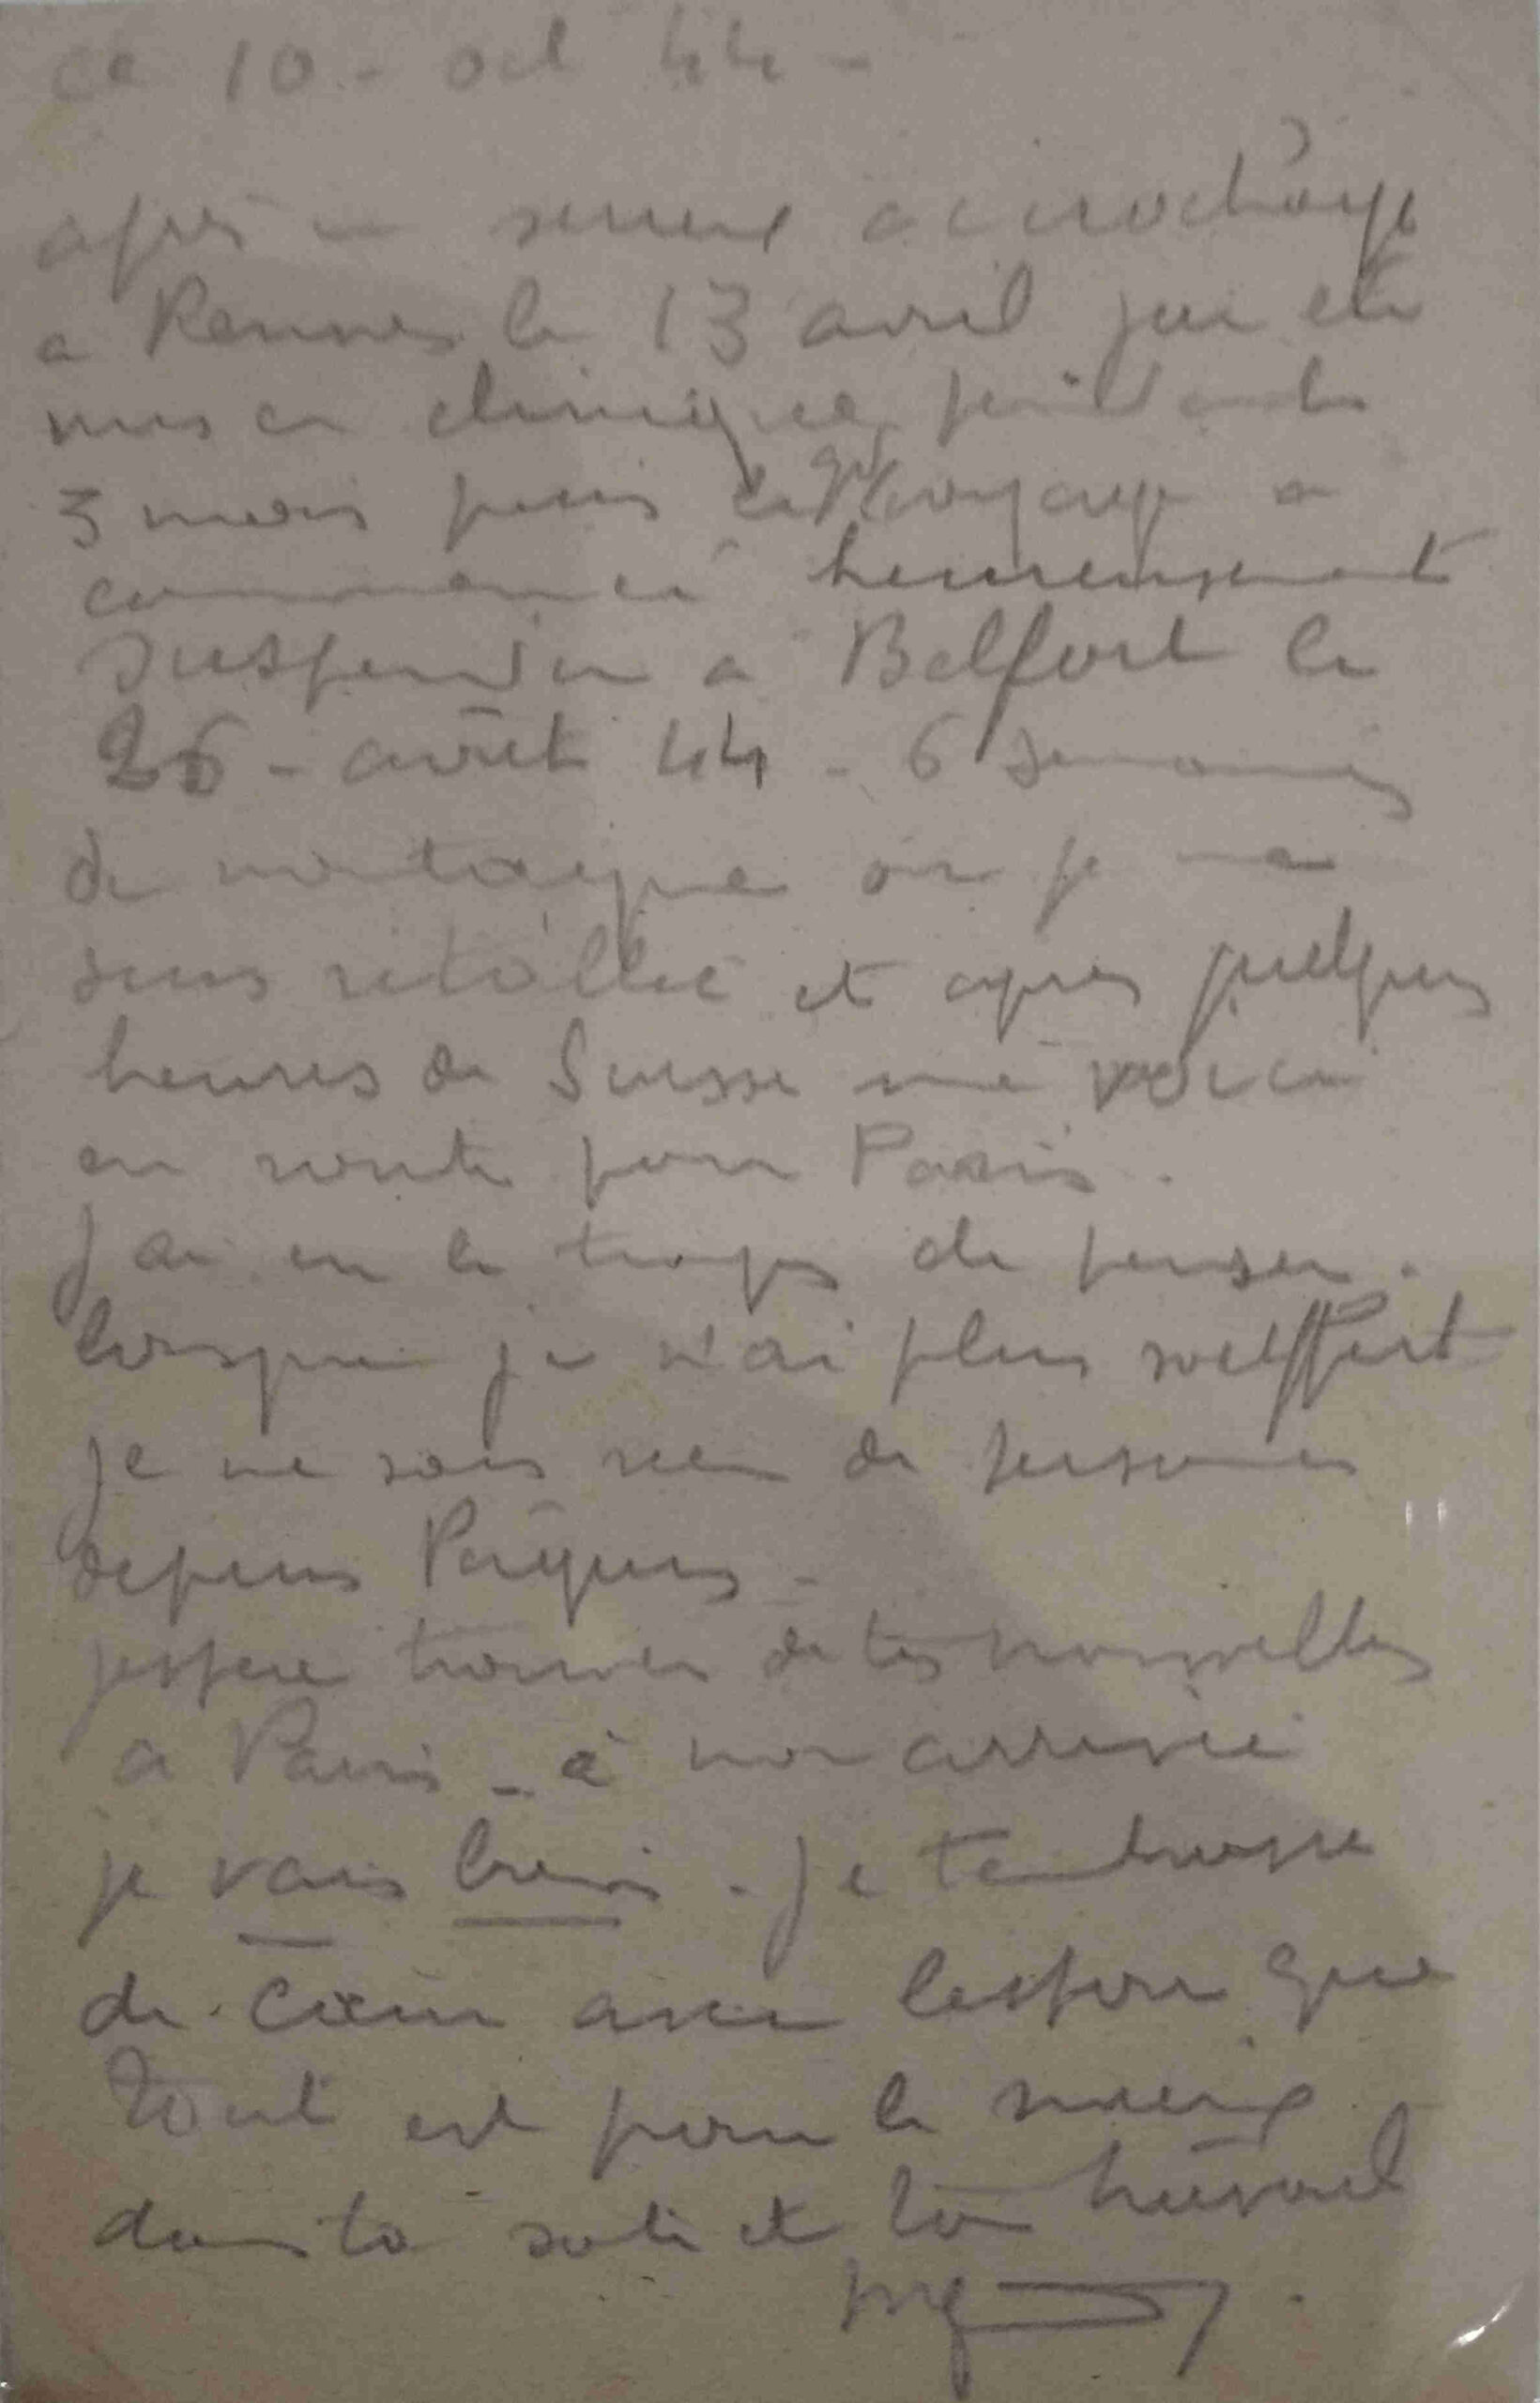 ce 10 - oct 44 -
après un sérieux accrochage
a Rennes le 13 avril j'ai été
mis en clinique pendant
3 mois puis le gd voyage a
commencé heureusement
suspendu a Belfort le
26 - août 44 - 6 semaines
de montagne où je me
suis rétabli et après quelques
heures de Suisse me voici
en route pour Paris.
J'ai eu le temps de penser.
lorsque je n'ai plus souffert
je ne sais rien de personne
depuis Pâques -
j'espère trouver de tes nouvelles
a Paris - à mon arrivée
je vais bien - je t'embrasse
de coeur avec l'espoir que
tout est pour le mieux
dans ta santé et ton travail